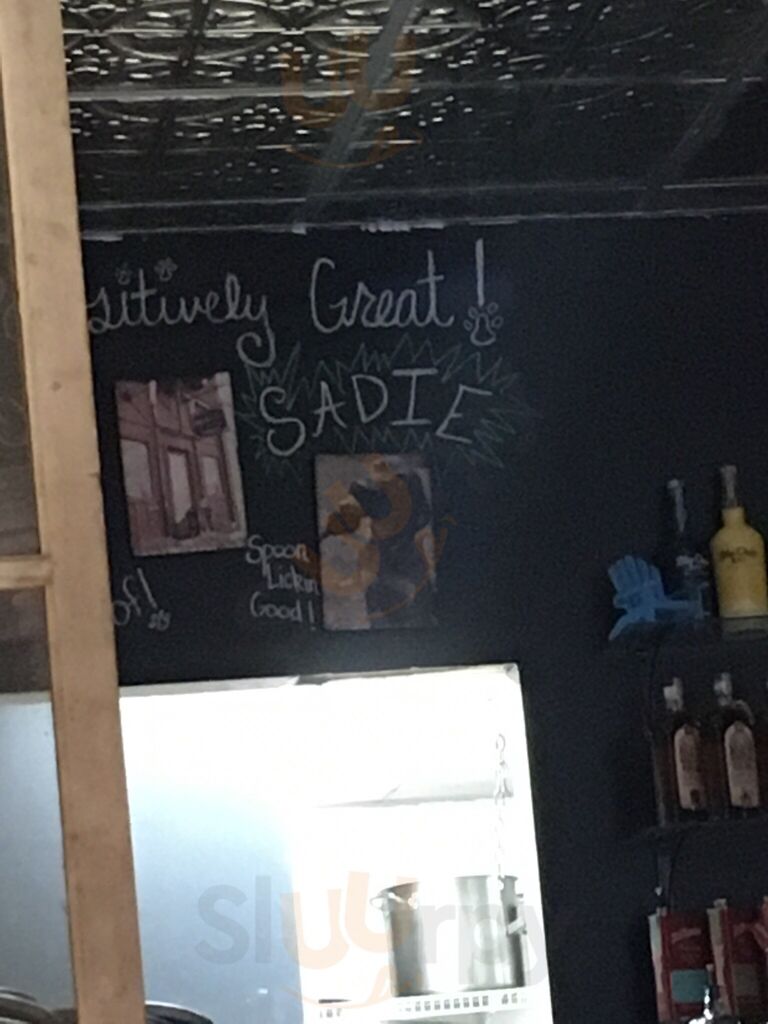 sitively Great!
SADIE
Spoon
Lickin
Good!
of!
Slurpy